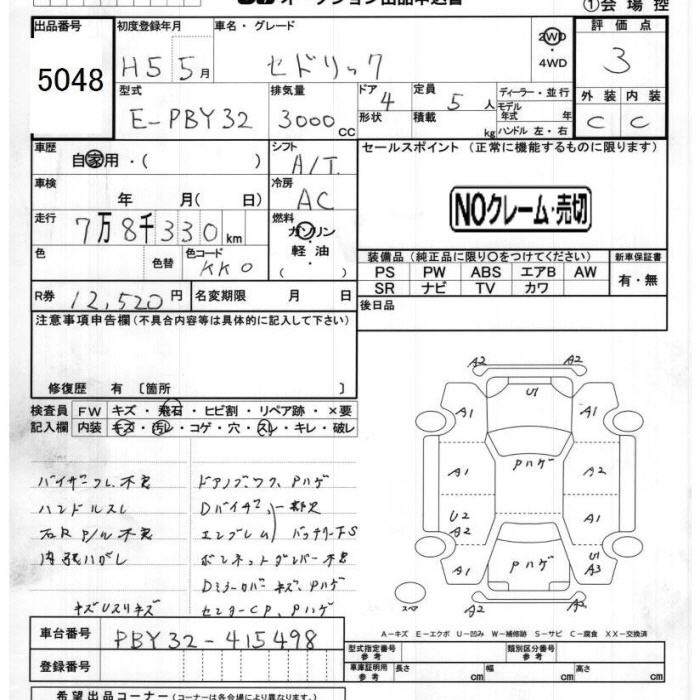 オークション出品申込書
①会場控
出品番号 初度登録年月 車名・グレード 評価点
5048 H5 5月 セドリック 2WD ・ 4WD 3
型式 排気量 ドア 4 定員 5 人 ディーラー・並行 外装 内装
E-PBY32 3000 CC 形状 積載 kg モデル年式 年 ハンドル左・右 C C
車歴 自家用・( ) シフト A/T セールスポイント (正常に機能するものに限ります)
車検 年 月( 日) 冷房 AC
NOクレーム・売切
走行 7万8千330km 燃料 ガソリン 軽油
色 色替 色コード KK0
装備品(純正品に限り○をつけてください) 新車保証書
PS PW ABS エアB AW 有・無
SR ナビ TV カワ
R券 12,520円 名変期限 月 日 後日品
注意事項申告欄(不具合内容等は具体的に記入して下さい)
修復歴 有 [箇所 ]
検査員 FW キズ・飛石・ヒビ割・リペア跡・×要
記入欄 内装 キズ・汚レ・コゲ・穴・スレ・キレ・破レ
バイザーフレ不良 ドアノブワク、Pハゲ
ハンドルスレ Dバイザー、一部欠
右R P/W不良 エンブレム バッテリーFS
内張ハガレ ボンネットダンパー不良
Dミラーカバーキズ、Pハゲ
キズUスリキズ センターCP、Pハゲ
A2 A2
U1
A1 A1
Pハゲ
A1 A2
U2 A2 A1
Pハゲ
A1 U1 A3
スペア
A2 A2
A-キズ E-エクボ U-凹み W-補修跡 S-サビ C-腐食 XX-交換済
車台番号 PBY32-415498
登録番号
型式指定番号 参考 類別区分番号 参考
車庫証明用 参考 長さ cm 幅 cm 高さ cm
希望出品コーナー(コーナーは各会場により異なります。)